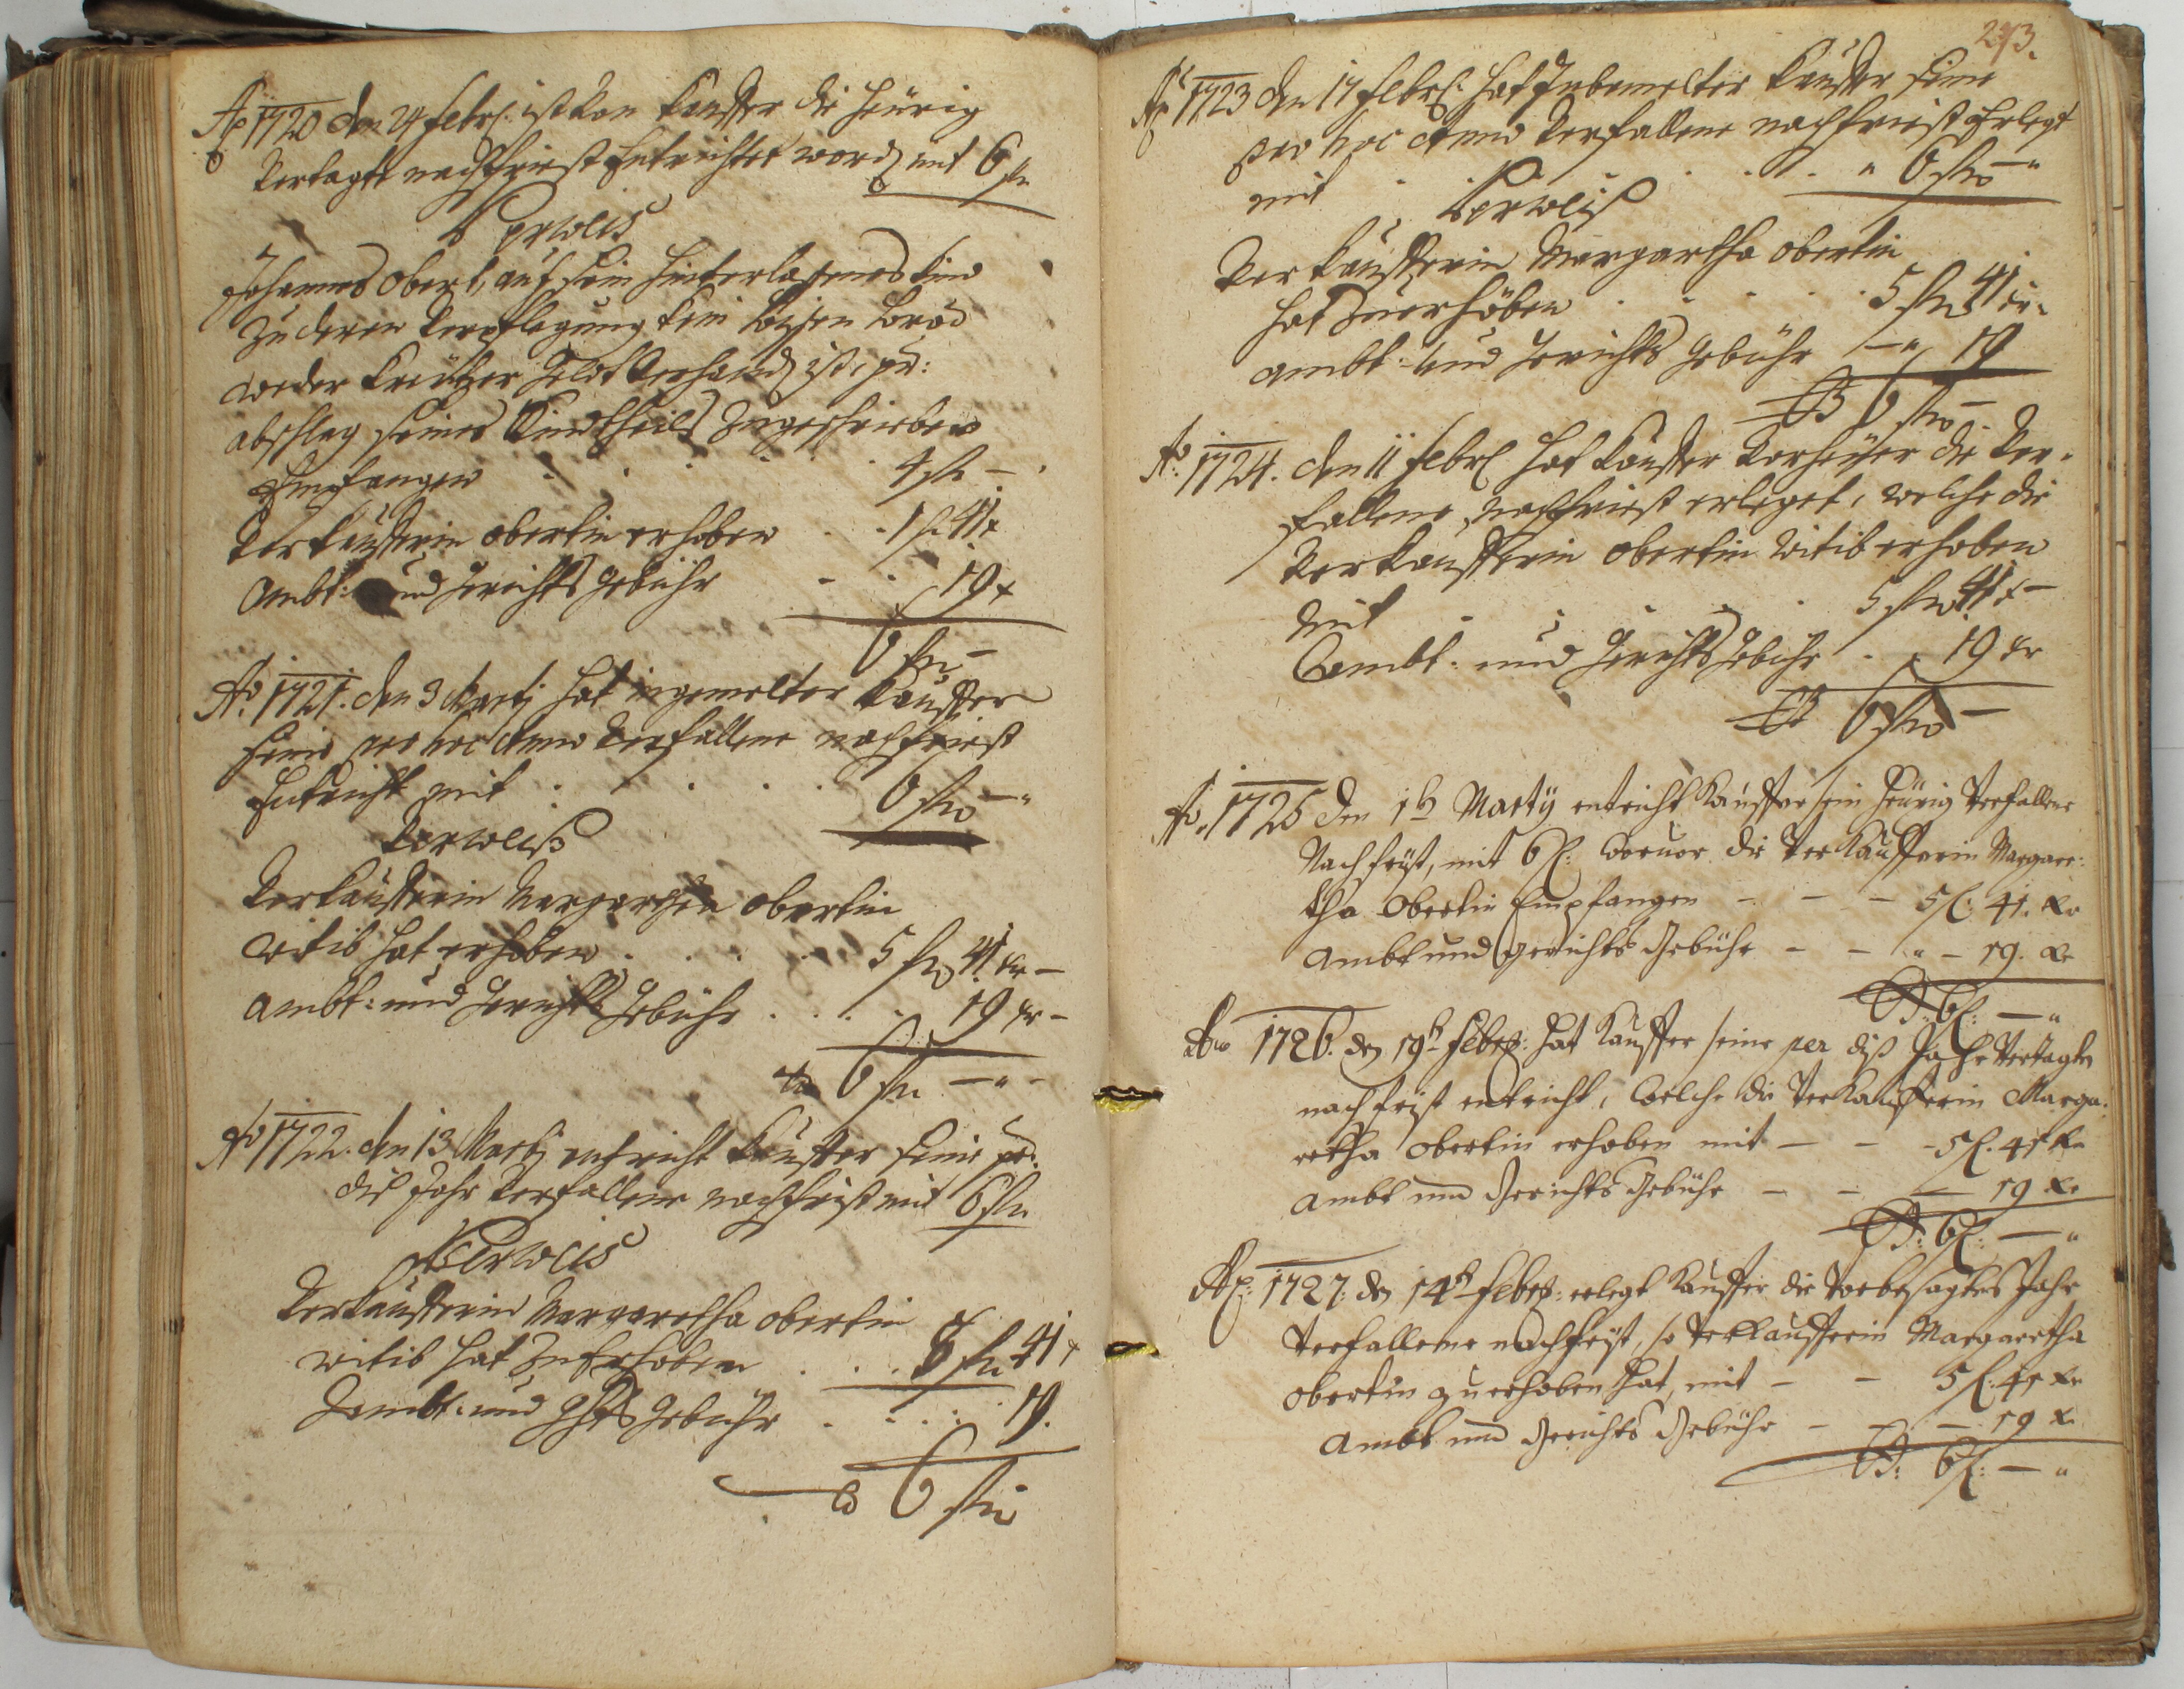 Ao 1720 den 4 Febr: ist von Kauffer die heürig
vertagte nachfrist Entrichtet word mit 6 fl
Verweis
Johannes Oberl, auf sein hinterlassenes Kind
zu deren Verpflegung kein bissen brod
weder Kreützer Geldt Verhand ist, pr:
abschlag seines Kindtheils Zugeschrieben
Empfangen 4 fl –
Verkaufferin Oberlin erhoben 1 fl 41 x
Ambt: und Gerichts Gebühr 19 x
6 fl –
Ao 1721. den 3 Martj hat ingemelter Kauffer
seine pro hoc Anno Verfallene nachfrist
Entricht mit 6 fl –
Verweiß
Verkaufferin Margaretha Oberlin
Witib hat erhoben 5 fl 41 xr –
Ambt: und Gerichts Gebühr 19 xr –
6 fl –
Ao 1722. den 13 Martj entricht Kauffer seine pr:
diß Jahr Verfallene nachfrist mit 6 fl
Verweis
Verkaufferin Margaretha Oberlin
Witib hat zu Erhoben 5 fl 41 x
Ambt: und Ghts Gebühr 19.
6 fl
273.
Ao 1723 den 17 Febr: hat Inbemelter Kauffer seine
pro hoc Anno Verfallene nachfrist Erlegt
mit 6 fl –
Verweiß
Verkaufferin Margaretha Oberlin
hat zu erhöben 5 fl 41 xr.
Ambt: und Gerichts Gebühr – 19
6 fl –
Ao 1724. den 11 Febr hat Kauffer die Ver-
fallene Nachfrist erleget, welche die
Verkaufferin Oberlin Witib erhoben
Mit 5 fl 41 x –
Ambt: und Gerichts Gebühr 19 xr
6 fl –
Ao 1725 den 16 Martÿ entricht Kauffer sein heürig Verfallene
Nachfrist, mit 6 fl: die Verkaufferin Margare:
tha Oberlin Empfangen – – – 5 fl: 41. xr
Ambt und Gerichts Gebühr – – " – 19. xr
6 fl: – "
Ao 1726. den 19t Febr: hat Kauffer seine per diß Jahr Vertagte
nachfrist entricht, Welche die Verkaufferin Marga:
retha Oberlin erhoben mit – – – 5 fl. 41 xr
Ambt und Gerichts Gebühr – – – 19 xr
6 fl: – "
Ao: 1727: den 14t Febr: erlegt Kauffer die Vorbesagtes Jahr
Verfallene nachfrist, so Verkaufferin Margaretha
Oberlin zu erhoben hat, mit – – 5 fl: 41 xr
Ambt und Gerichts Gebühr – – – 19 x
6 fl: – "